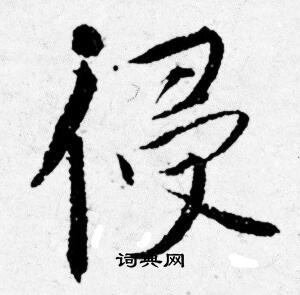 侵
词典网